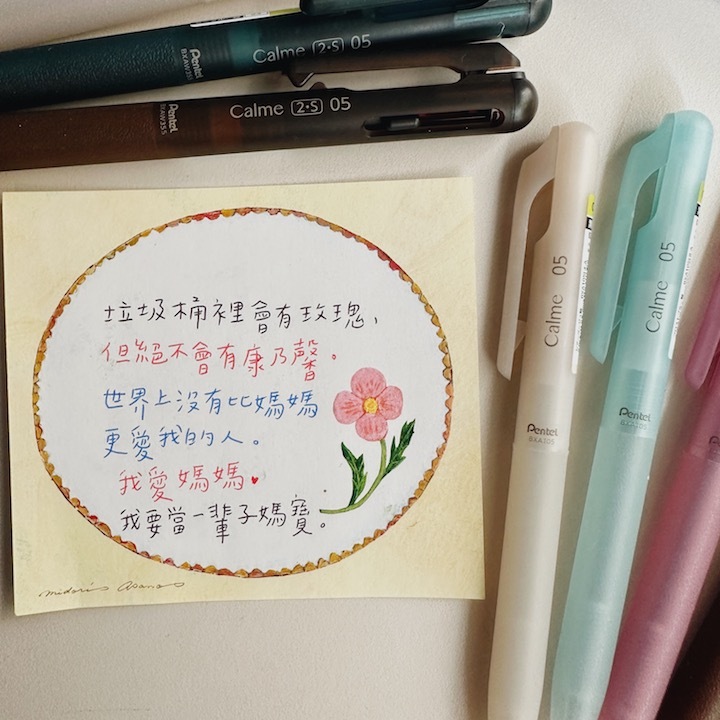 Pentel
BXAW355
Calme 2·S 05
Pentel
BXAW355
Calme 2·S 05
垃圾桶裡會有玫瑰,
但絕不會有康乃馨。
世界上沒有比媽媽
更愛我的人。
我愛媽媽♥
我要當一輩子媽寶。
Midori Asano
Calme 05
Pentel
BXA105
Calme 05
Pentel
BXA105